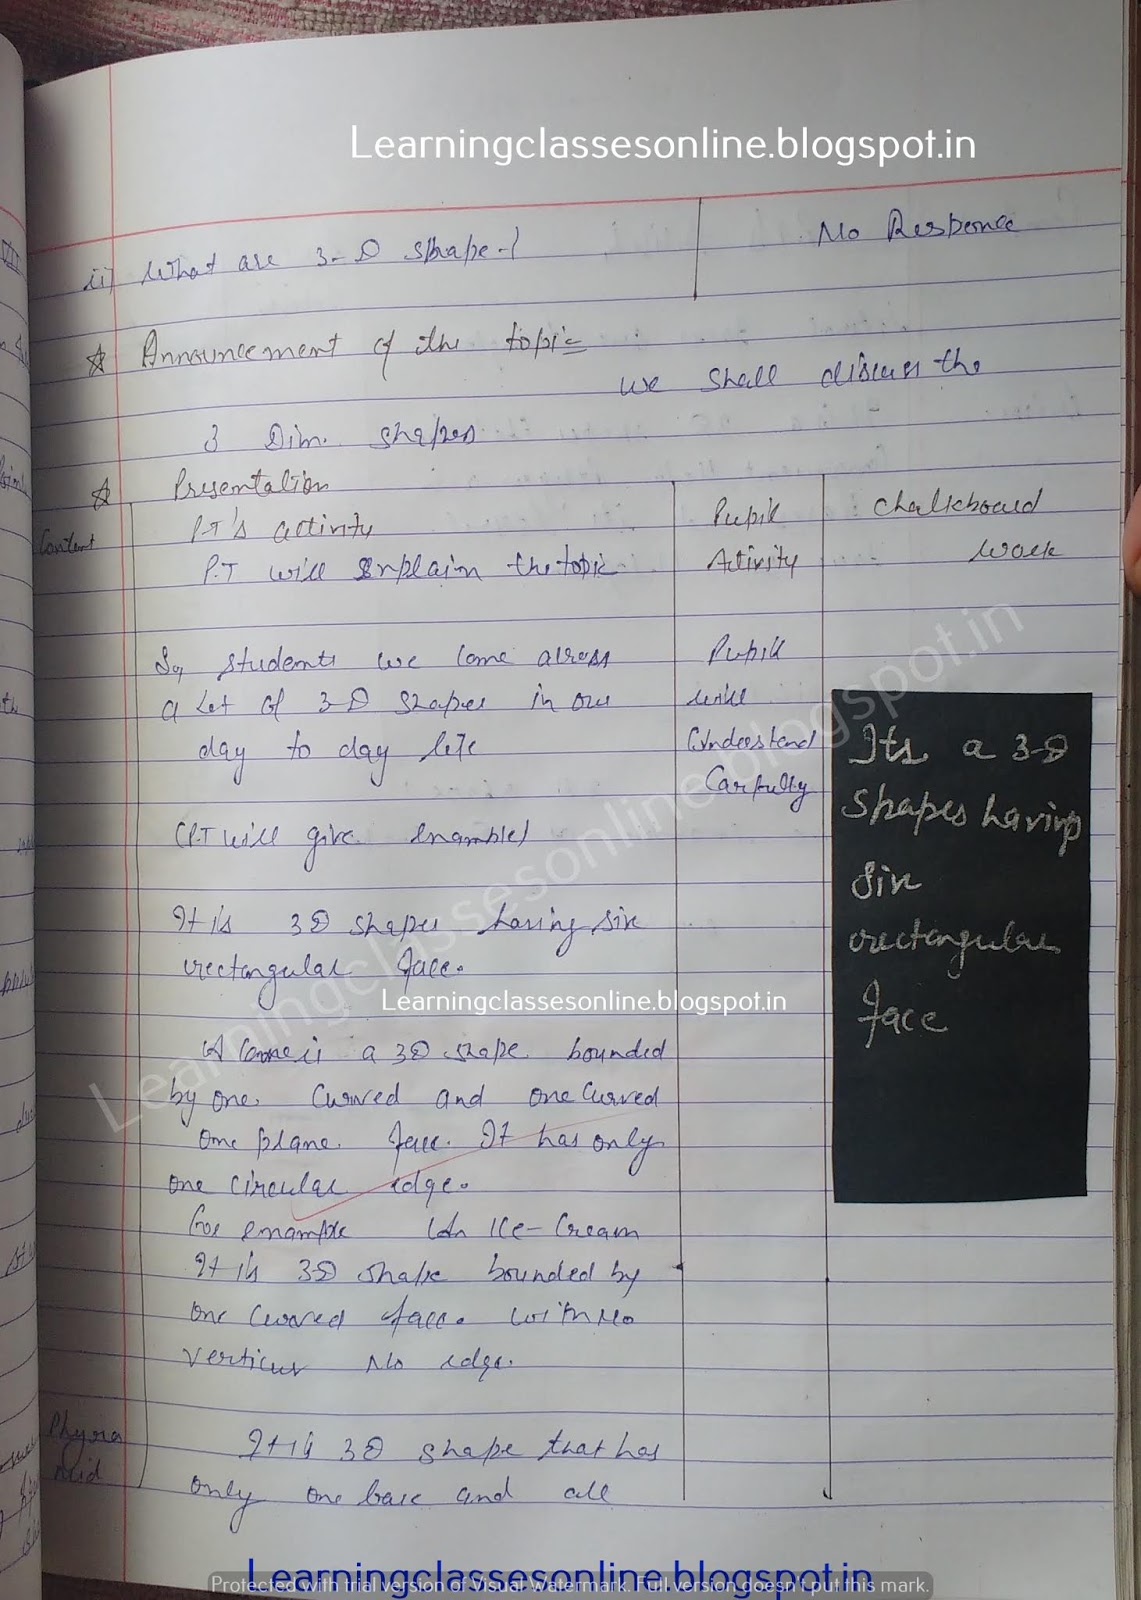 Learningclassesonline.blogspot.in
ii) What are 3-D shape-?
No Responce
☆ Announcement of the topic
we shall discuss the
3 Dim. shapes
☆ Presentation
Content
P.T's activity
P.T will Explaim the topic
Pupil
Activity
Chalkboard
work
So, students we come across
a Lot of 3-D shapes in our
day to day life
Pupil
will
Understand
Carfully
(P.T will give Enamples)
It is 3D shapes having Six
rectangular face.
Its a 3-D
Shapes having
Six
rectangular
face
Learningclassesonline.blogspot.in
Learningclassesonline.blogspot.in
A Cone is a 3D shape bounded
by one. Curved and one Curved
one plane. face. It has only
one circular edge.
For enample Ice-Cream
It is 3D shape bounded by
one Curved face. with No
verticus No edge.
Phyra
mid
It is 3D shape that has
only one base and all
Learningclassesonline.blogspot.in
Protected with trial version of Visual Watermark. Full version doesn't put this mark.